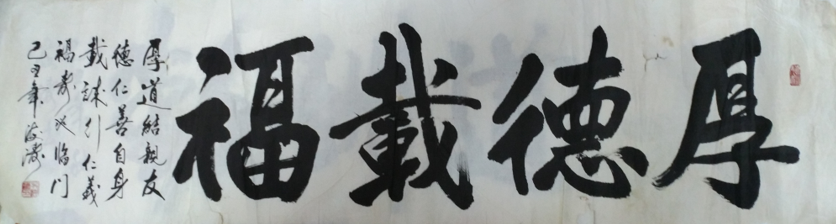 厚德載福
厚道結親友
德仁善自身
載誌引仁義
福壽必臨門
己丑年